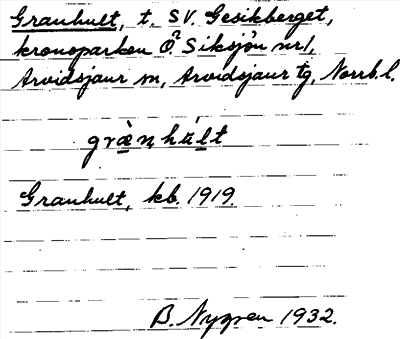 Granhult, t. SV. Gesikberget,
kronoparken Ö. Siksjön nr 1,
Arvidsjaur sn, Arvidsjaur tg, Norrb. l.
grànhúlt
Granhult, kb. 1919
B. Nygren 1932.